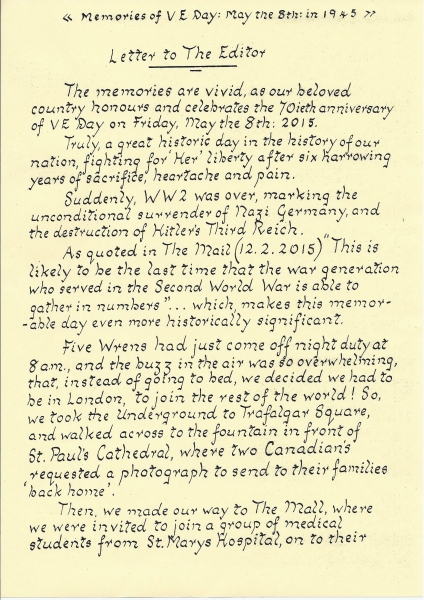 « Memories of V E Day: May the 8th: in 1945 »
Letter to The Editor
The memories are vivid, as our beloved
country honours and celebrates the 70ieth anniversary
of V E Day on Friday, May the 8th: 2015.
Truly, a great historic day in the history of our
nation, fighting for 'Her' liberty after six harrowing
years of sacrifice, heartache and pain.
Suddenly, WW2 was over, marking the
unconditional surrender of Nazi Germany, and
the destruction of Hitler's Third Reich.
As quoted in The Mail (12.2.2015) "This is
likely to be the last time that the war generation
who served in the Second World War is able to
gather in numbers"... which, makes this memor-
-able day even more historically significant.
Five Wrens had just come off night duty at
8am., and the buzz in the air was so overwhelming,
that, instead of going to bed, we decided we had to
be in London, to join the rest of the world! So,
we took the Underground to Trafalgar Square,
and walked across to the fountain in front of
St. Paul's Cathedral, where two Canadian's
requested a photograph to send to their families
'back home'.
Then, we made our way to The Mall, where
we were invited to join a group of medical
students from St. Marys Hospital, on to their